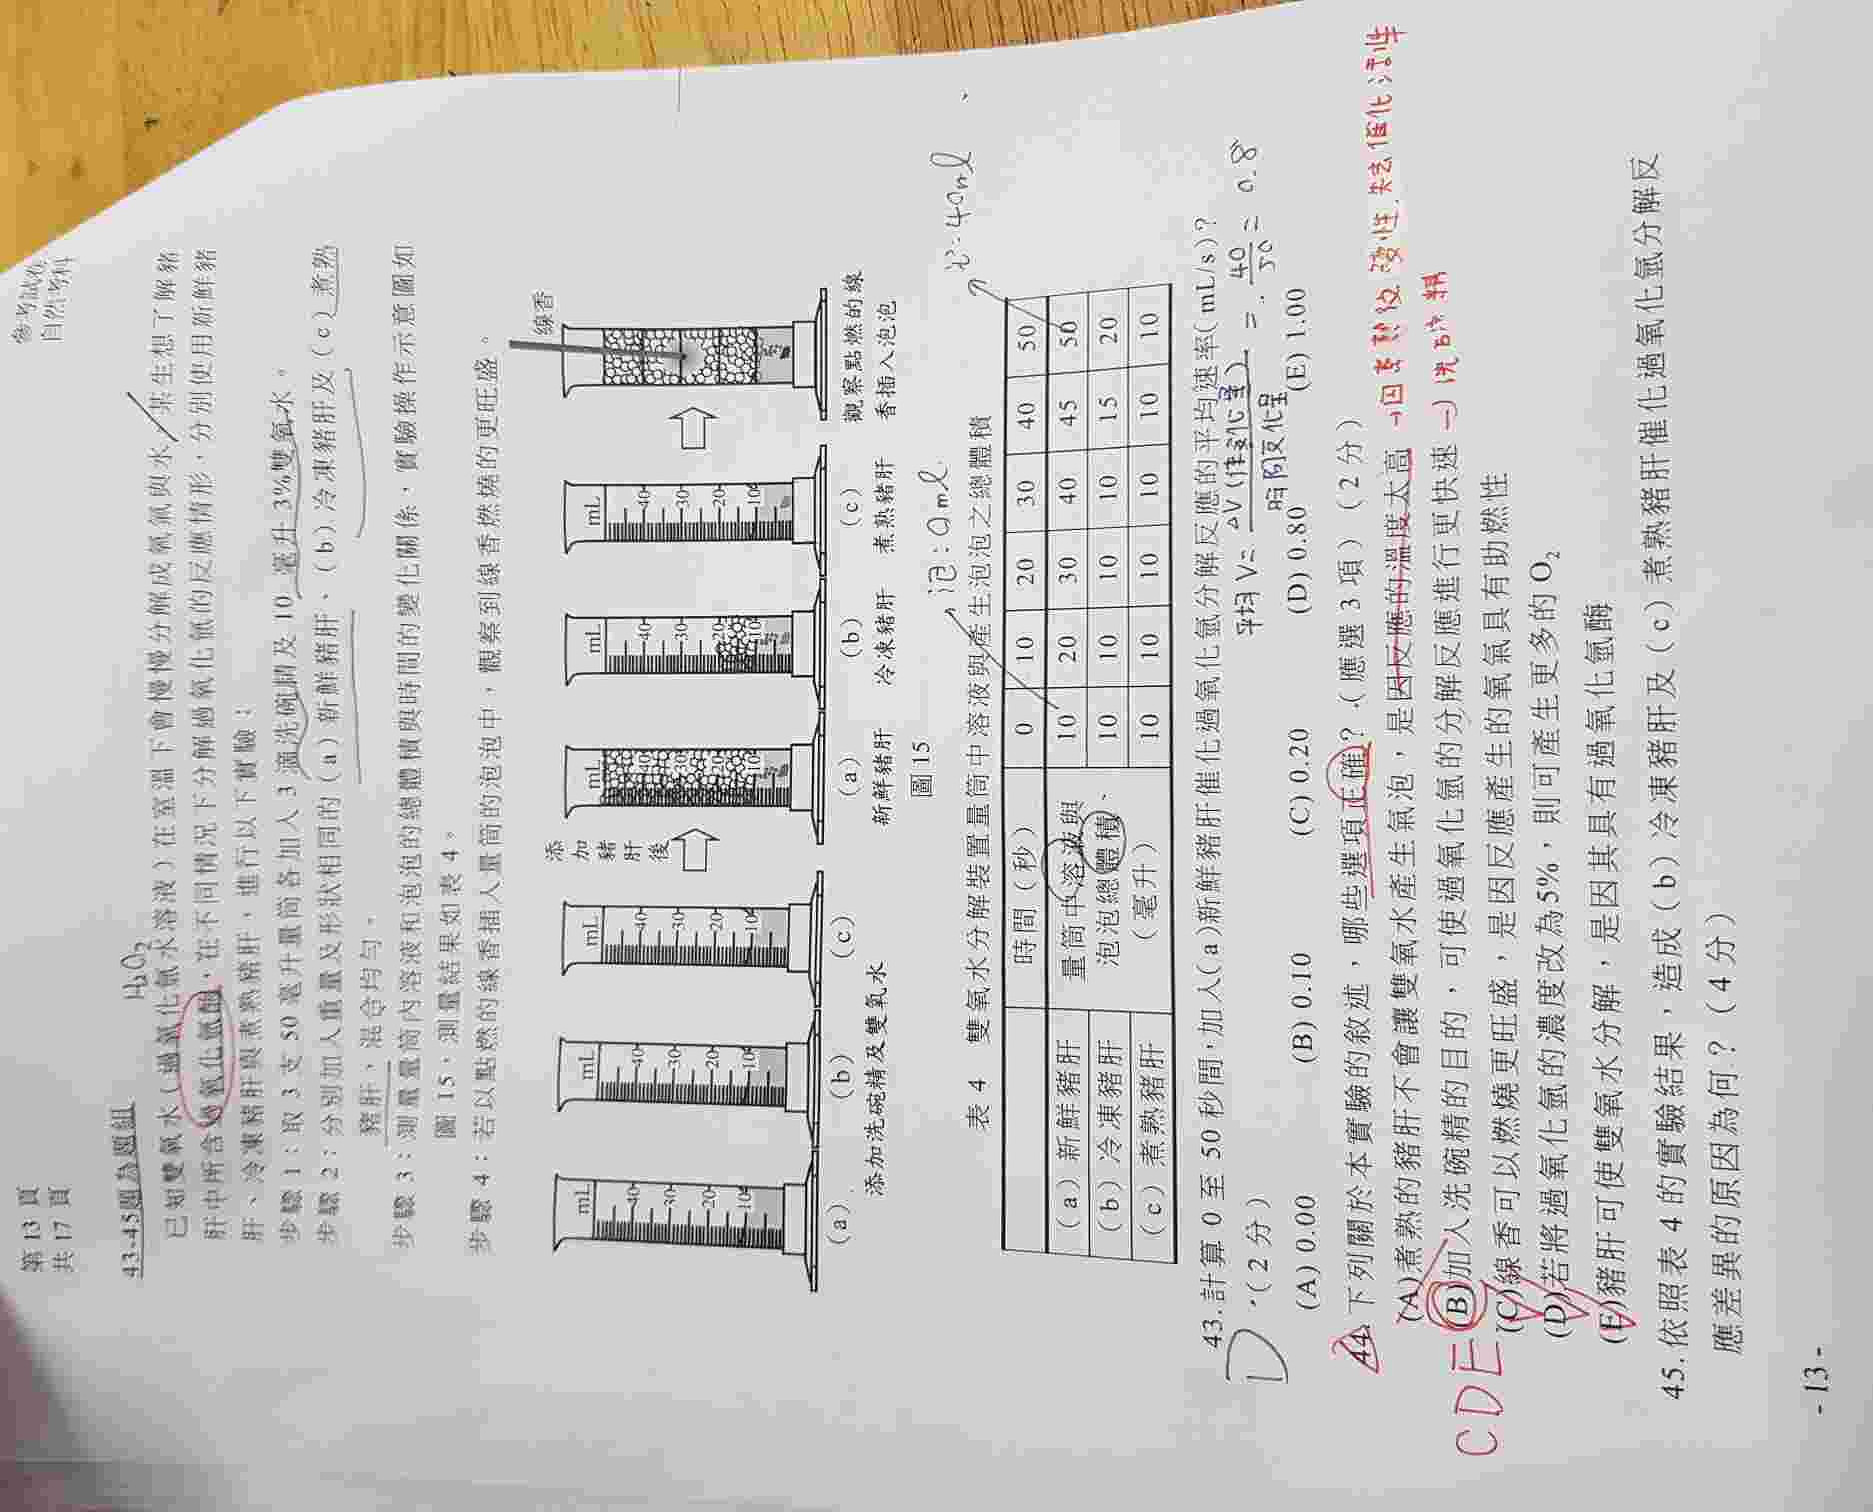 第 13 頁
共 17 頁
參考試卷
自然考科
43-45題為題組
H₂O₂
已知雙氧水（過氧化氫水溶液）在室溫下會慢慢分解成氧氣與水，某生想了解豬
肝中所含過氧化氫酶，在不同情況下分解過氧化氫的反應情形，分別使用新鮮豬
肝、冷凍豬肝與煮熟豬肝，進行以下實驗：
步驟 1：取 3 支 50 毫升量筒各加入 3 滴洗碗精及 10 毫升 3%雙氧水。
步驟 2：分別加入重量及形狀相同的（a）新鮮豬肝、（b）冷凍豬肝及（c）煮熟
豬肝，混合均勻。
步驟 3：測量量筒內溶液和泡泡的總體積與時間的變化關係，實驗操作示意圖如
圖 15，測量結果如表 4。
步驟 4：若以點燃的線香插入量筒的泡泡中，觀察到線香燃燒的更旺盛。
mL 40 30 20 10
mL 40 30 20 10
mL 40 30 20 10
添加豬肝後
mL 40 30 20 10
mL 40 30 20 10
mL 40 30 20 10
線香
（a） （b） （c）
添加洗碗精及雙氧水
（a） （b） （c）
新鮮豬肝 冷凍豬肝 煮熟豬肝
觀察點燃的線
香插入泡泡
圖 15
泡:0ml
泡:40ml
表 4 雙氧水分解裝置量筒中溶液與產生泡泡之總體積
時間（秒） 0 10 20 30 40 50
（a）新鮮豬肝 量筒中溶液與泡泡總體積（毫升） 10 20 30 40 45 50
（b）冷凍豬肝 10 10 10 10 15 20
（c）煮熟豬肝 10 10 10 10 10 10
D
43.計算 0 至 50 秒間，加入（a）新鮮豬肝催化過氧化氫分解反應的平均速率（mL/s）？
（2 分）
平均V= ΔV(體積變化量) / 時間變化量 = 40/50 = 0.8
(A) 0.00 (B) 0.10 (C) 0.20 (D) 0.80 (E) 1.00
44.下列關於本實驗的敘述，哪些選項正確？（應選 3 項）（2 分）
(A)煮熟的豬肝不會讓雙氧水產生氧泡，是因反應的溫度太高 →因煮熟後變性.失去催化活性
(B)加入洗碗精的目的，可使過氧化氫的分解反應進行更快速 →洗碗精
(C)線香可以燃燒更旺盛，是因反應產生的氧氣具有助燃性
(D)若將過氧化氫的濃度改為5%，則可產生更多的 O₂
(E)豬肝可使雙氧水分解，是因其具有過氧化氫酶
CDE
45.依照表 4 的實驗結果，造成（b）冷凍豬肝及（c）煮熟豬肝催化過氧化氫分解反
應差異的原因為何？（4 分）
- 13 -